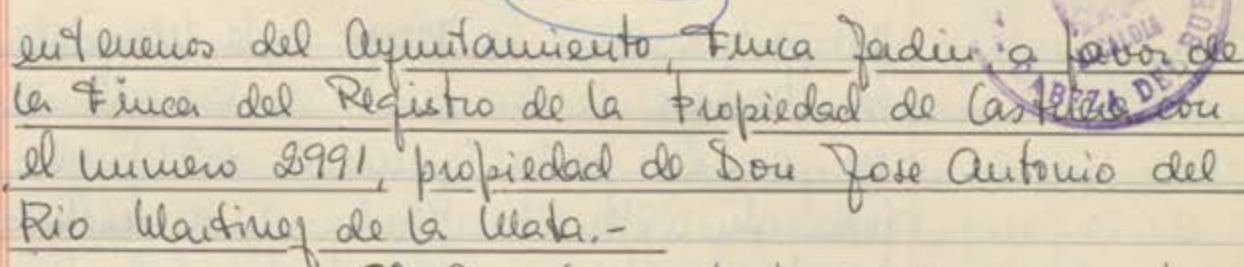 en terrenos del Ayuntamiento, Finca Jadin, a favor de
la Finca del Registro de la Propiedad de Castuera con
el numero 2991, propiedad de Don Jose Antonio del
Rio Martinez de la Mata.-
ALCALDIA
CABEZA DEL BUE